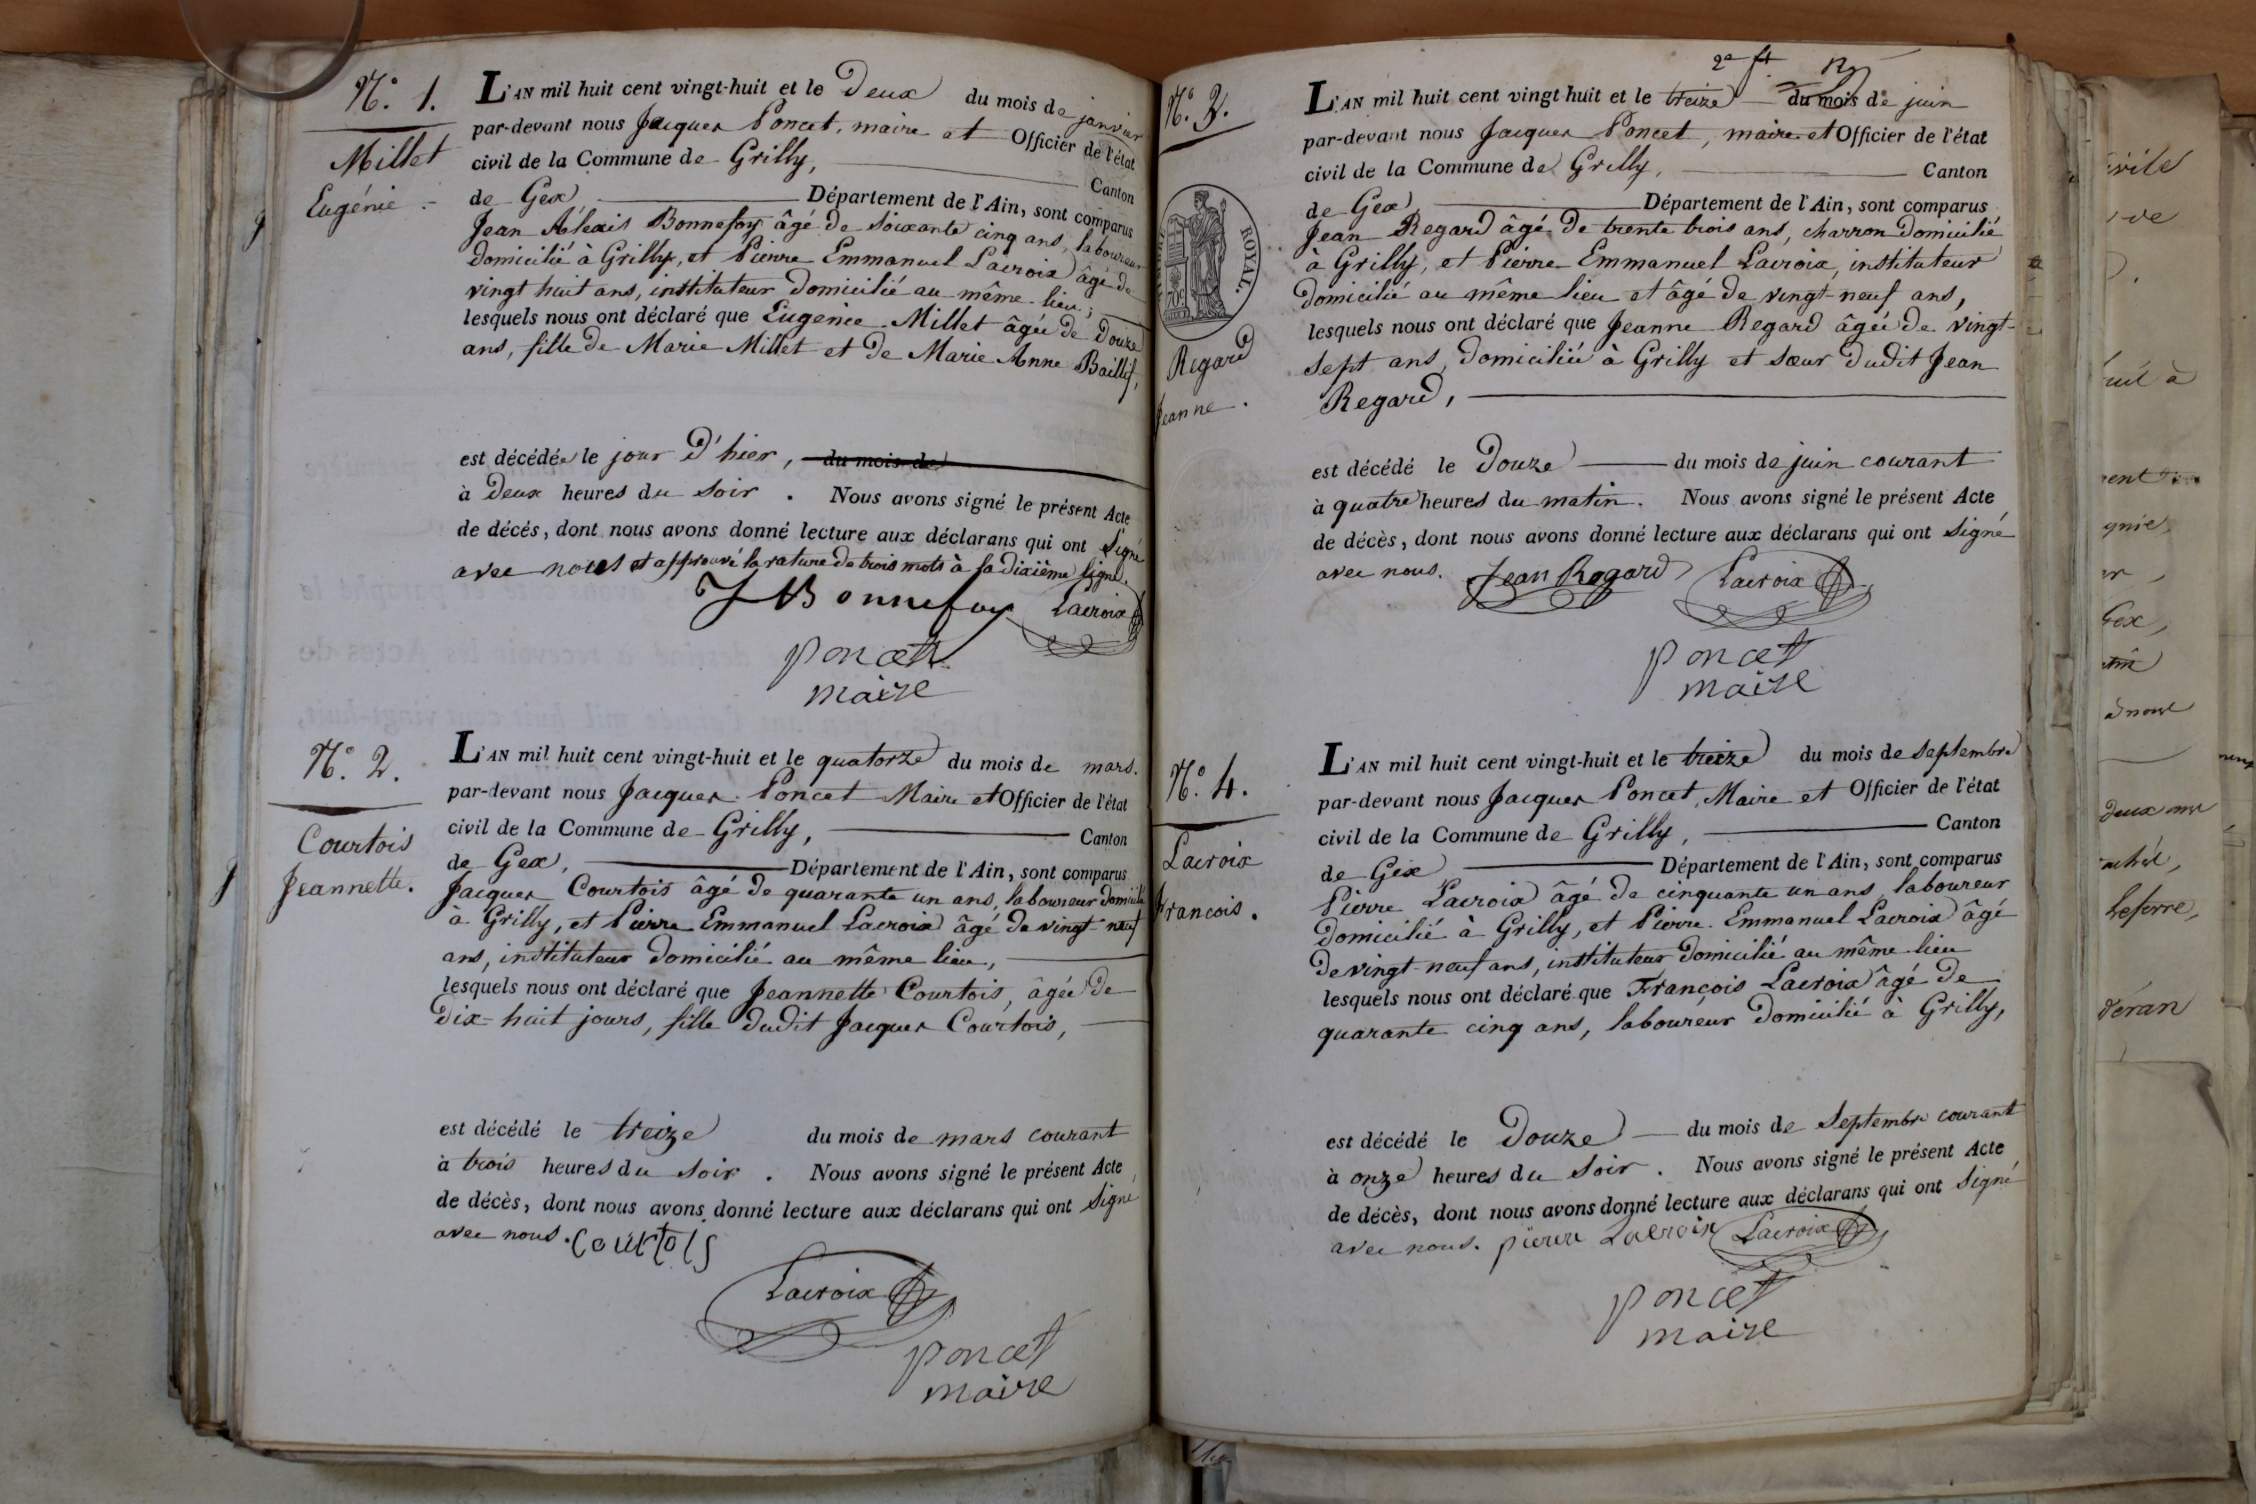 N.° 1.
Millet
Eugénie.
L'AN mil huit cent vingt-huit et le deux du mois de janvier
par-devant nous Jacques Poncet, maire et Officier de l'état
civil de la Commune de Grilly, Canton
de Gex, Département de l'Ain, sont comparus
Jean Aléxis Bonnefoy âgé de soixante cinq ans, laboureur
domicilié à Grilly, et Pierre Emmanuel Lacroix âgé de
vingt huit ans, instituteur domicilié au même lieu,
lesquels nous ont déclaré que Eugénie Millet âgée de douze
ans, fille de Marie Millet et de Marie Anne Baillif,
est décédée le jour d'hier, du mois de
à deux heures du soir. Nous avons signé le présent Acte
de décés, dont nous avons donné lecture aux déclarans qui ont signé
avec nous et approuvé la rature de trois mots à la dixième ligne.
Bonnefoy Lacroix
poncet
maire
N.° 2.
Courtois
Jeannette.
L'AN mil huit cent vingt-huit et le quatorze du mois de mars.
par-devant nous Jacques Poncet Maire et Officier de l'état
civil de la Commune de Grilly, Canton
de Gex, Département de l'Ain, sont comparus
Jacques Courtois âgé de quarante un ans, laboureur domicilié
à Grilly, et Pierre Emmanuel Lacroix âgé de vingt neuf
ans, instituteur domicilié au même lieu,
lesquels nous ont déclaré que Jeannette Courtois, âgée de
dix-huit jours, fille dudit Jacques Courtois,
est décédé le treize du mois de mars courant
à trois heures du soir. Nous avons signé le présent Acte
de décès, dont nous avons donné lecture aux déclarans qui ont signé
avec nous. Courtois
Lacroix
poncet
maire
N.° 3.
ROYAL.
Regard
Jeanne.
L'AN mil huit cent vingt-huit et le treize du mois de juin
par-devant nous Jacques Poncet, maire et Officier de l'état
civil de la Commune de Grilly, Canton
de Gex, Département de l'Ain, sont comparus
Jean Regard âgé de trente trois ans, charron domicilié
à Grilly, et Pierre Emmanuel Lacroix, instituteur
domicilié au même lieu et âgé de vingt-neuf ans,
lesquels nous ont déclaré que Jeanne Regard âgée de vingt-
sept ans, domiciliée à Grilly et sœur dudit Jean
Regard,
est décédé le douze du mois de juin courant
à quatre heures du matin. Nous avons signé le présent Acte
de décès, dont nous avons donné lecture aux déclarans qui ont signé
avec nous. Jean Regard Lacroix
poncet
maire
N.° 4.
Lacroix
François.
L'AN mil huit cent vingt-huit et le treize du mois de septembre
par-devant nous Jacques Poncet, Maire et Officier de l'état
civil de la Commune de Grilly, Canton
de Gex Département de l'Ain, sont comparus
Pierre Lacroix âgé de cinquante un ans, laboureur
domicilié à Grilly, et Pierre Emmanuel Lacroix âgé
de vingt-neuf ans, instituteur domicilié au même lieu
lesquels nous ont déclaré que François Lacroix âgé de
quarante cinq ans, laboureur domicilié à Grilly,
est décédé le douze du mois de septembre courant
à onze heures du soir. Nous avons signé le présent Acte
de décès, dont nous avons donné lecture aux déclarans qui ont signé
avec nous. pierre Lacroix Lacroix
poncet
maire